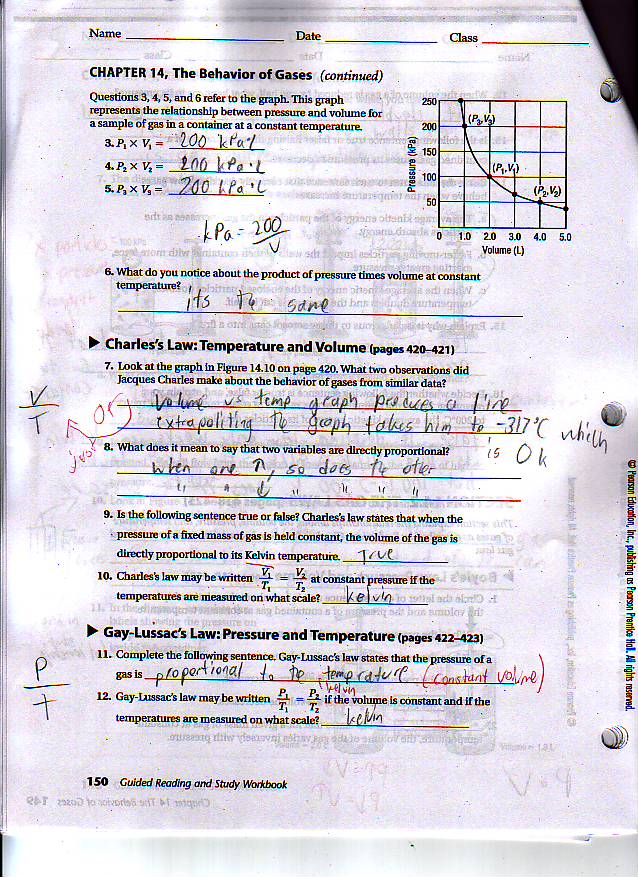 Name Date Class
CHAPTER 14, The Behavior of Gases (continued)
Questions 3, 4, 5, and 6 refer to the graph. This graph
represents the relationship between pressure and volume for
a sample of gas in a container at a constant temperature.
3. P₁ × V₁ = 200 kPa·L
4. P₂ × V₂ = 200 kPa·L
5. P₃ × V₃ = 200 kPa·L
kPa = 200/V
Pressure (kPa)
250
200
150
100
50
(P₃,V₃)
(P₁,V₁)
(P₂,V₂)
0 1.0 2.0 3.0 4.0 5.0
Volume (L)
6. What do you notice about the product of pressure times volume at constant
temperature?
its the same
Charles's Law: Temperature and Volume (pages 420–421)
7. Look at the graph in Figure 14.10 on page 420. What two observations did
Jacques Charles make about the behavior of gases from similar data?
V/T
Volume vs temp graph produces a line
extrapoliting the graph takes him to -317°C which
is 0k
8. What does it mean to say that two variables are directly proportional?
when one ↑, so does the other
" " ↓ " " " "
9. Is the following sentence true or false? Charles's law states that when the
pressure of a fixed mass of gas is held constant, the volume of the gas is
directly proportional to its Kelvin temperature. True
10. Charles's law may be written V₁/T₁ = V₂/T₂ at constant pressure if the
temperatures are measured on what scale? kelvin
Gay-Lussac's Law: Pressure and Temperature (pages 422–423)
P/T
11. Complete the following sentence. Gay-Lussac's law states that the pressure of a
gas is proportional to the temprature (constant volume)
kelvin
12. Gay-Lussac's law may be written P₁/T₁ = P₂/T₂ if the volume is constant and if the
temperatures are measured on what scale? kelvin
150 Guided Reading and Study Workbook
© Pearson Education, Inc., publishing as Pearson Prentice Hall. All rights reserved.